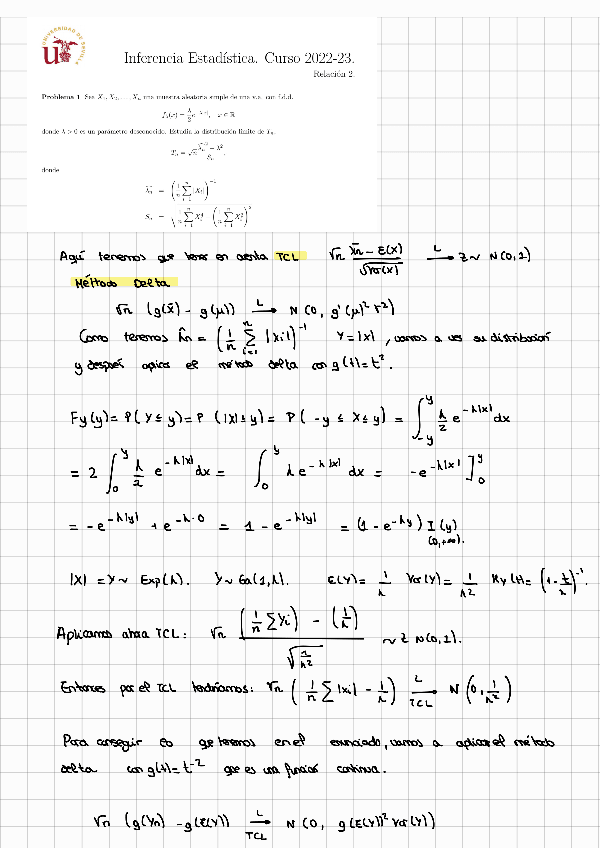 UNIVERSIDAD DE SEVILLA
Inferencia Estadística. Curso 2022-23.
Relación 2.
Problema 1 Sea X₁, X₂, ..., Xₙ una muestra aleatoria simple de una v.a. con f.d.d.
x ∈ ℝ
donde λ > 0 es un parámetro desconocido. Estudia la distribución límite de Tₙ,
donde
Aquí tenemos que tener en cuenta TCL √n (X̄n - E(X)) / √Var(X) →L Z ~ N(0,1)
Método Delta
√n (g(x̄) - g(μ)) →L N(0, g'(μ)² σ²)
Como tenemos λ̂n = (1/n Σ_{i=1}^{n} |Xi|)⁻¹ Y = |X|, vamos a ver su distribución
y después aplica el método delta con g(t) = t².
Fy(y) = P(Y ≤ y) = P(|X| ≤ y) = P(-y ≤ X ≤ y) = ∫_{-y}^{y} λ/2 e^{-λ|x|} dx
= 2 ∫_0^y λ/2 e^{-λ|x|} dx = ∫_0^y λ e^{-λ|x|} dx = -e^{-λ|x|} ]_0^y
= -e^{-λ|y|} + e^{-λ·0} = 1 - e^{-λ|y|} = (1 - e^{-λy}) I(y)
(0,+∞).
|X| = Y ~ Exp(λ). Y ~ Ga(1,λ). E(Y) = 1/λ Var(Y) = 1/λ² My(t) = (1 - t/λ)⁻¹.
Aplicamos ahora TCL: √n ((1/n ΣYi) - (1/λ)) / √(1/λ²) ~ Z N(0,1).
Entonces por el TCL tendríamos: √n (1/n Σ|Xi| - 1/λ) →L TCL N(0, 1/λ²)
Para conseguir lo que tenemos en el enunciado, vamos a aplicar el método
delta con g(t) = t⁻² que es una función continua.
√n (g(Yn) - g(E(Y))) →L TCL N(0, g(E(Y))² Var(Y))